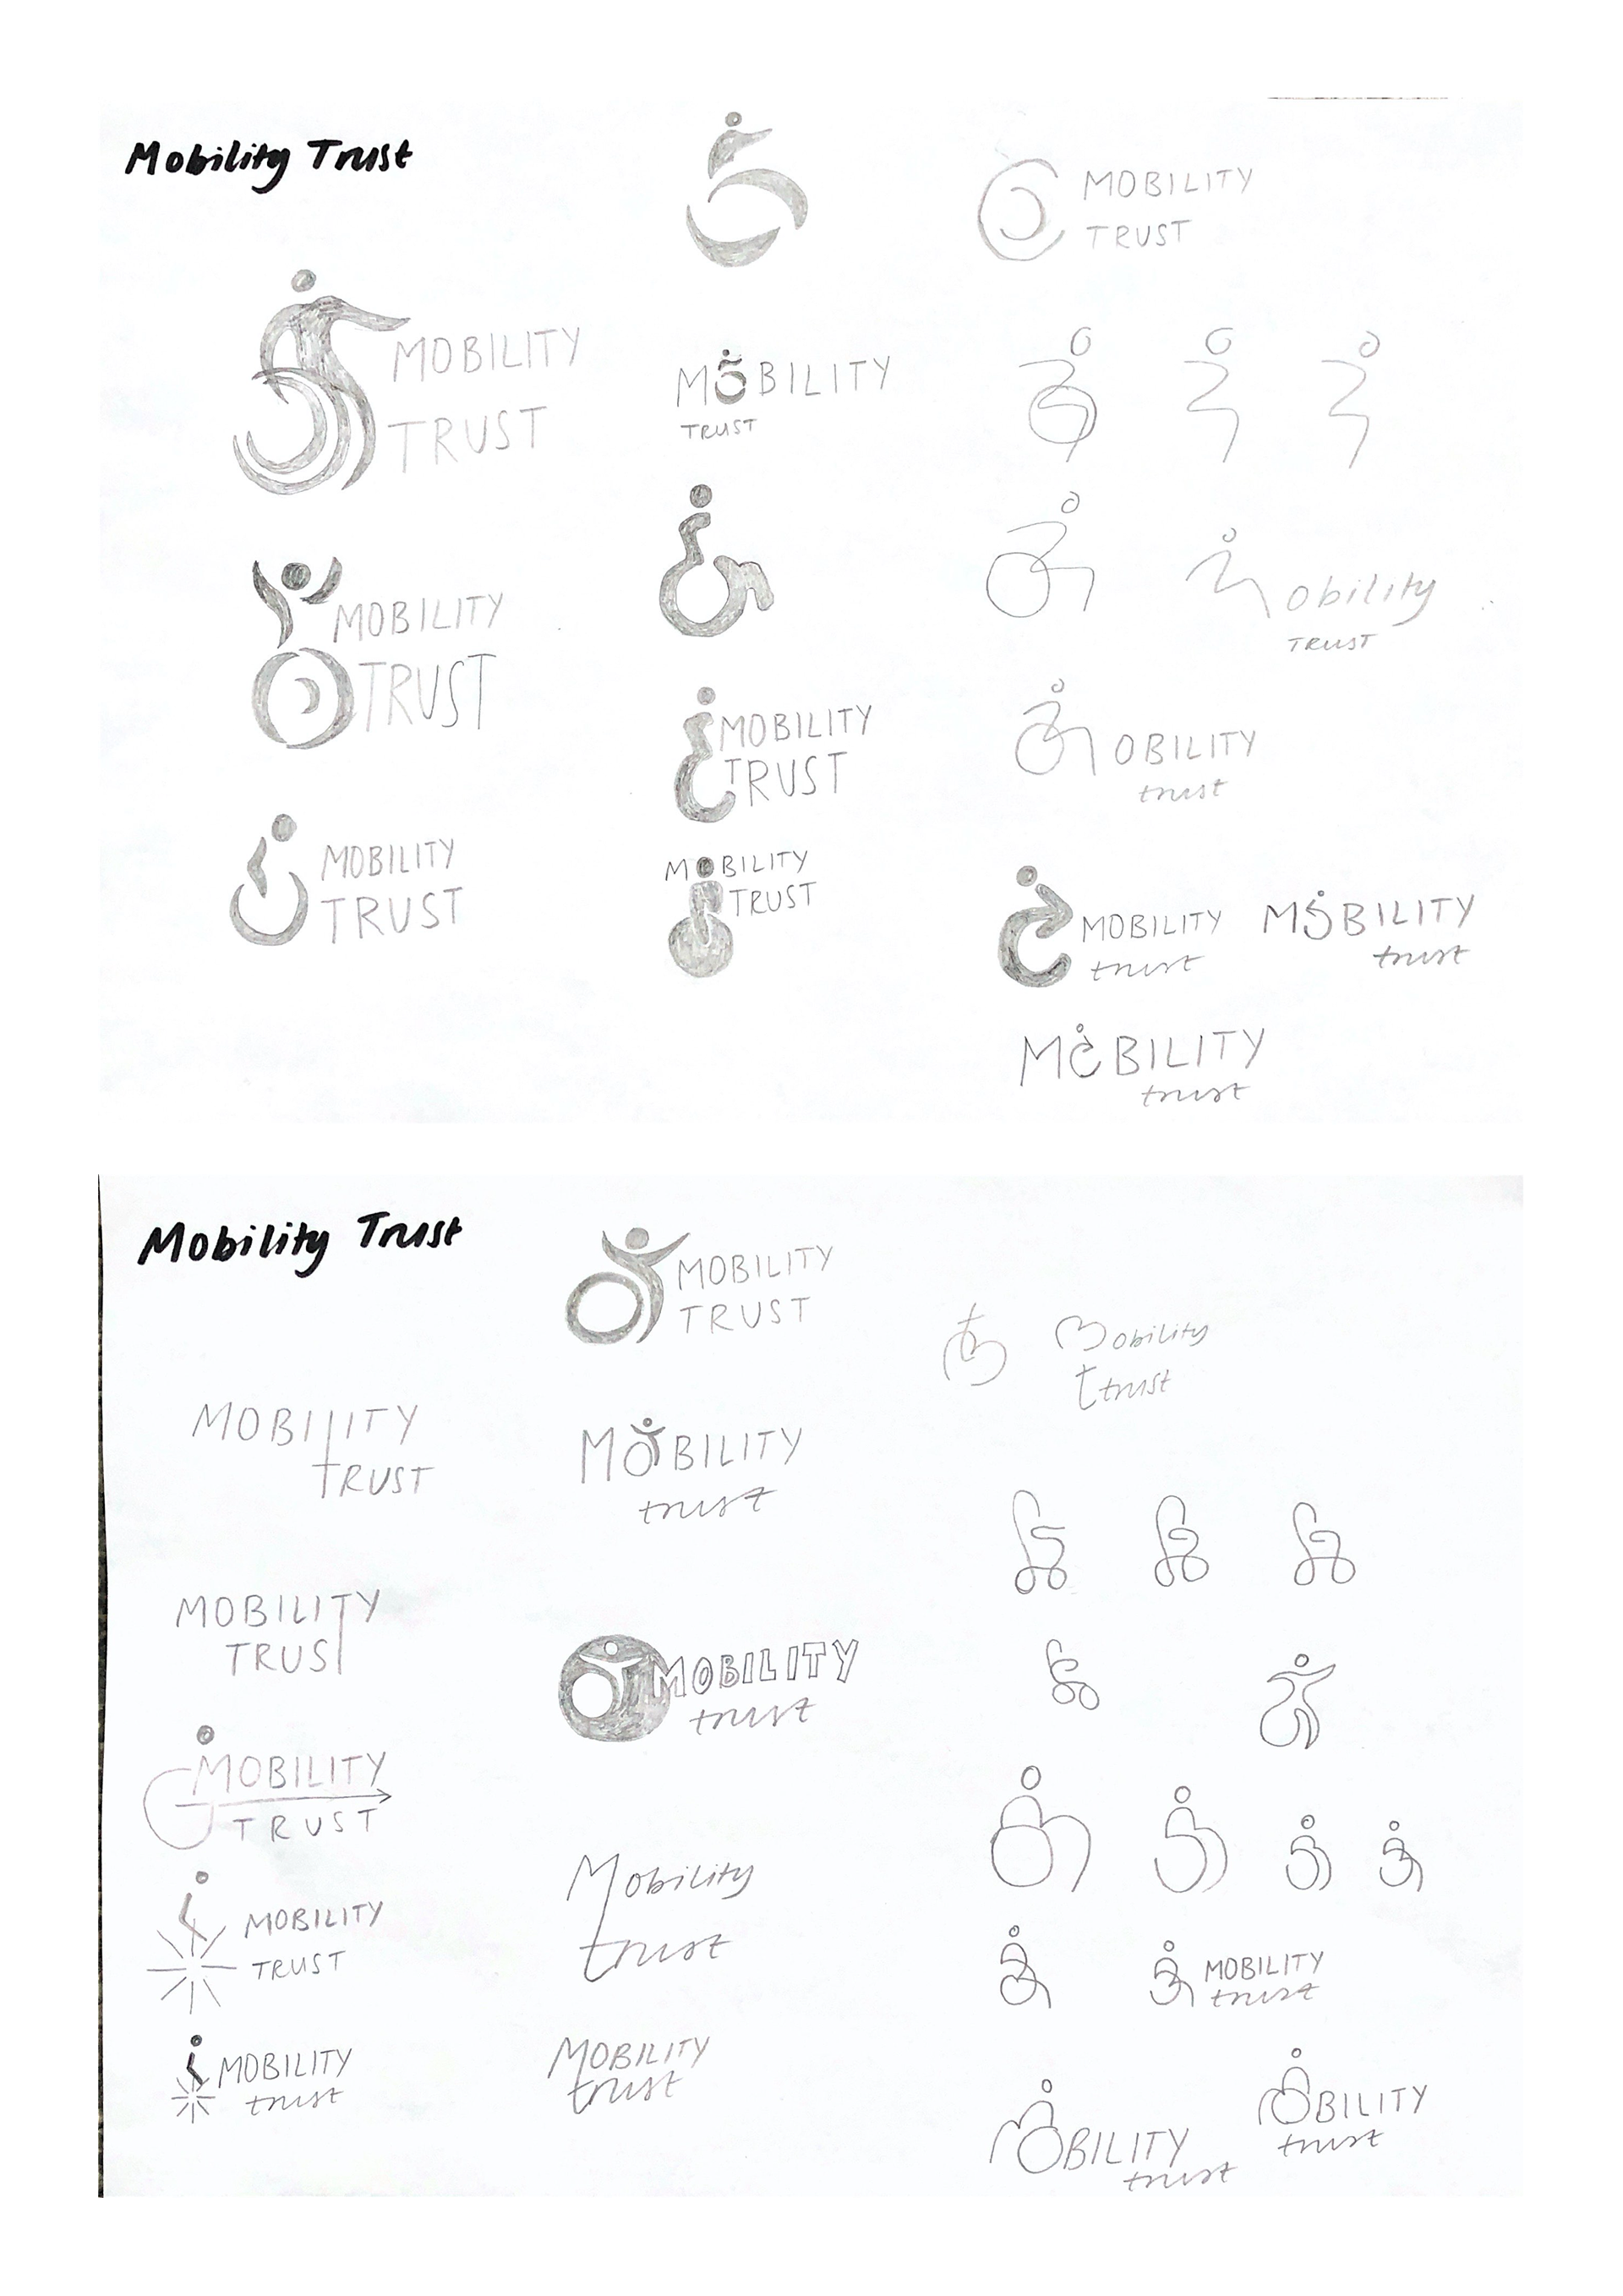 Mobility Trust
MOBILITY
TRUST
MOBILITY
TRUST
MOBILITY
TRUST
MOBILITY
TRUST
MOBILITY
TRUST
MOBILITY
TRUST
MOBILITY
TRUST
Mobility
TRUST
MOBILITY
trust
MOBILITY
trust
MOBILITY
trust
MOBILITY
trust
Mobility Trust
MOBILITY
TRUST
MOBILITY
TRUST
MOBILITY
TRUST
MOBILITY
TRUST
MOBILITY
trust
MOBILITY
TRUST
MOBILITY
trust
MOBILITY
trust
Mobility
trust
MOBILITY
trust
Mobility
ttrust
MOBILITY
trust
MOBILITY
trust
MOBILITY
trust